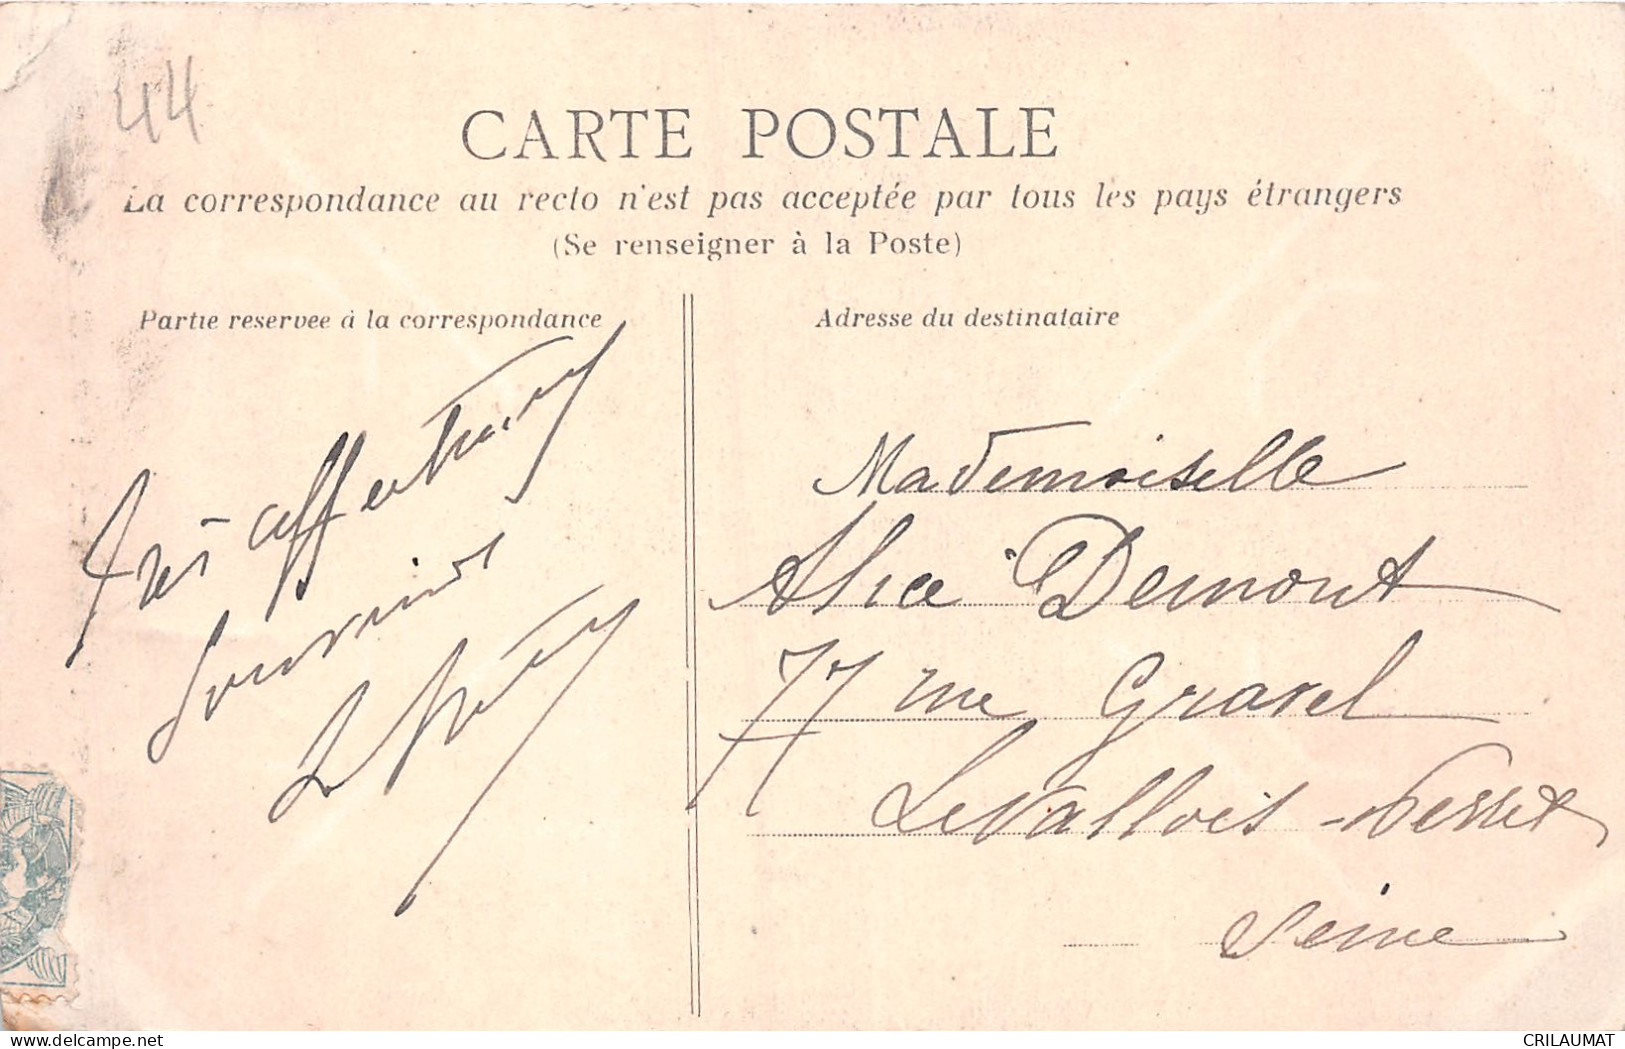 44
CARTE POSTALE
La correspondance au recto n'est pas acceptée par tous les pays étrangers
(Se renseigner à la Poste)
Partie reservee à la correspondance
Très affectueux
Souvenirs
Adresse du destinataire
Mademoiselle
Alice Demont
77 rue Gravel
Levallois-Perret
Seine
delcampe.net
CRILAUMAT